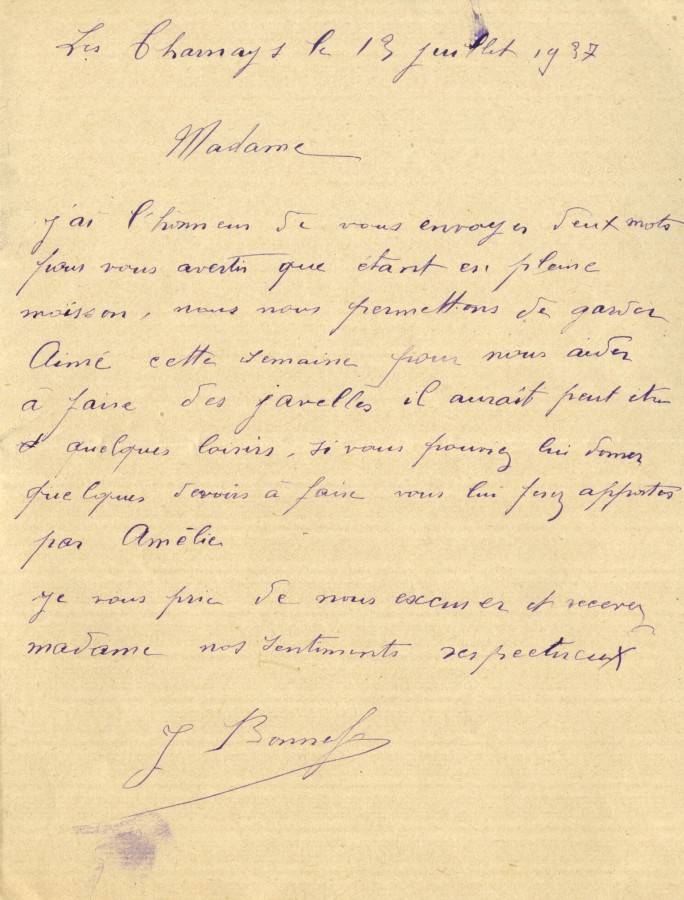 Les Charnays le 13 juillet 1937
Madame
j'ai l'honneur de vous envoyer deux mots
pour vous avertir que étant en pleine
moisson, nous nous permettons de garder
Aimé cette semaine pour nous aider
à faire des javelles il aurait peut etre
quelques loisirs, si vous pouviez lui donner
quelques devoirs à faire vous lui ferez apporter
par Amélie
je vous prie de nous excuser et recevez
madame nos sentiments respectueux
J Bonnef